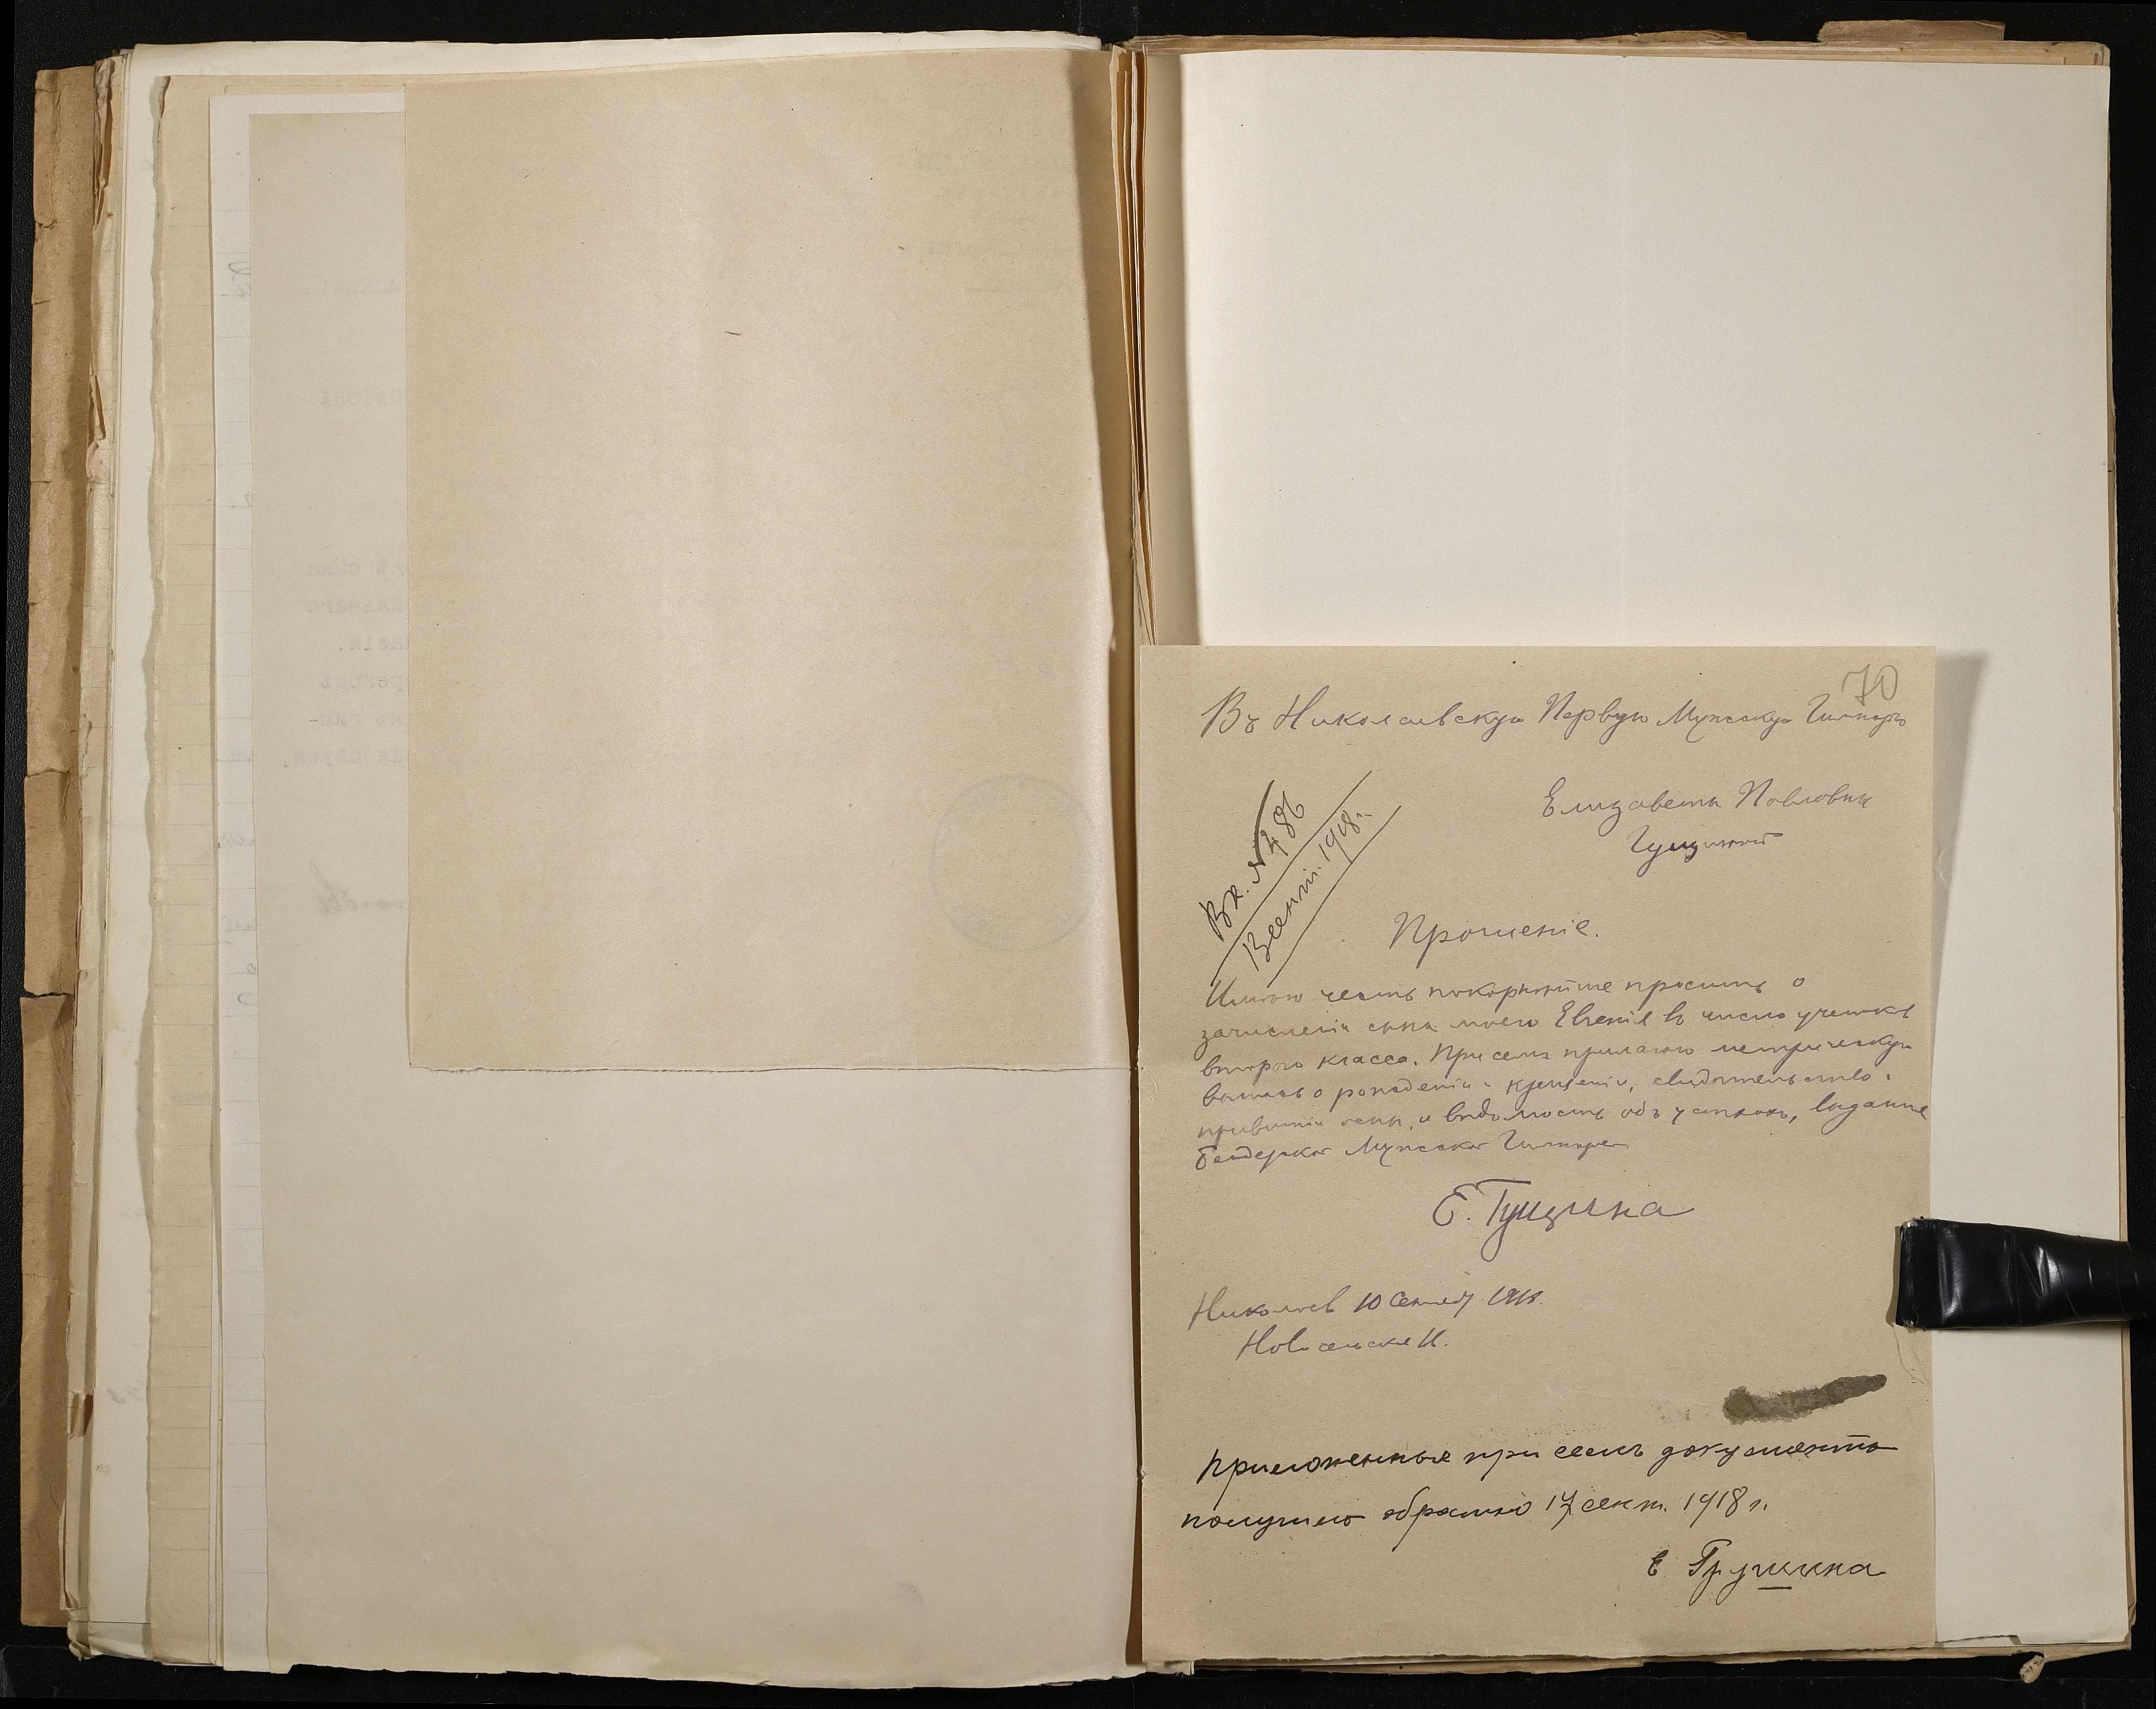 70
Въ Николаевскую Первую Мужскую Гимназію
Елизаветы Павловны
Гущиной
Вх. № 486
1918 г.
Прошеніе.
Имѣю честь покорнѣйше просить о
зачисленіи сына моего Евгенія въ число учениковъ
второго класса. При семъ прилагаю метрическую
выпись о рожденіи и крещеніи, свидѣтельство о
привитіи оспы, и вѣдомость объ успѣхахъ, выданные
Бендерской Мужской Гимназіей
Е. Гущина
Николаев 10 Сентяб. 1918.
приложенные при семъ документы
получило обратно 17 сент. 1918 г.
Е Гущина